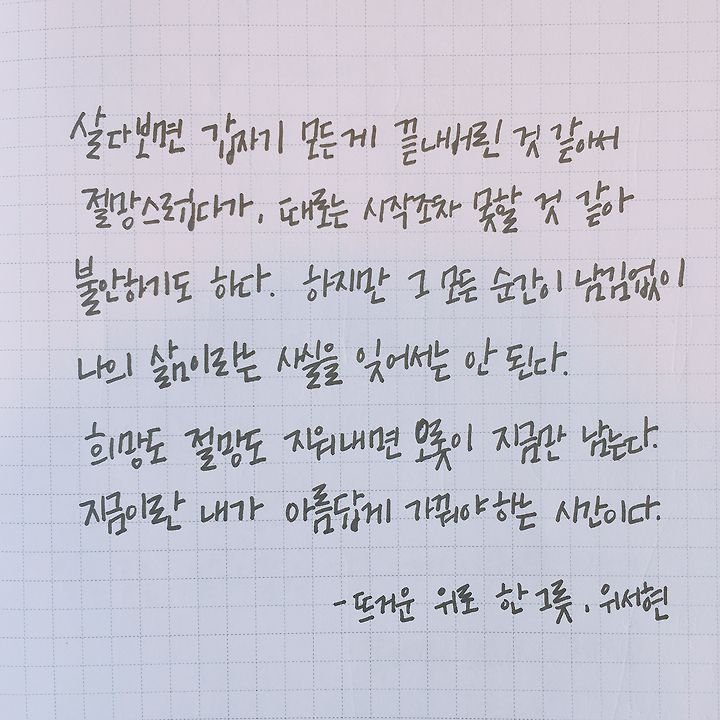 살다보면 갑자기 모든게 끝내버린 것 같아서
절망스럽다가, 때로는 시작조차 못할 것 같아
불안하기도 하다. 하지만 그 모든 순간이 남김없이
나의 삶이라는 사실을 잊어서는 안 된다.
희망도 절망도 지워내면 오롯이 지금만 남는다.
지금이란 내가 아름답게 가꿔야 하는 시간이다.
- 뜨거운 위로 한 그릇, 위서현